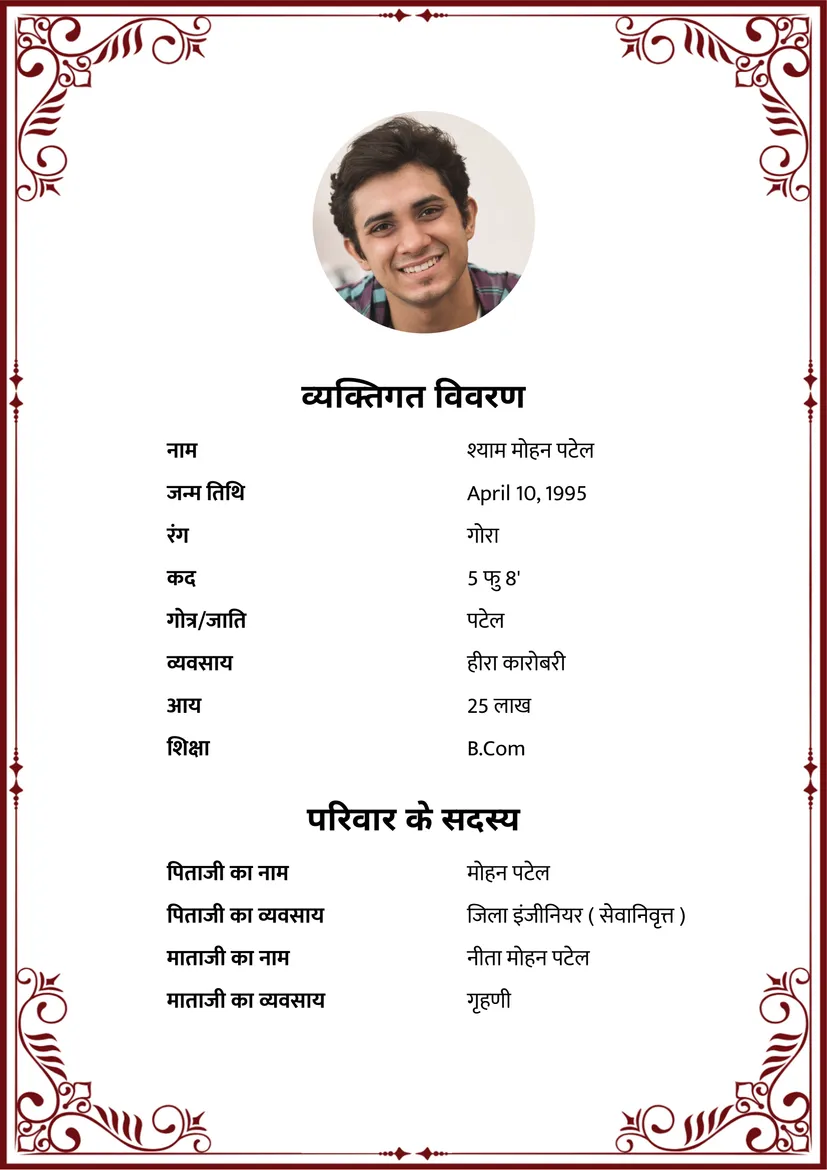 व्यक्तिगत विवरण
नाम श्याम मोहन पटेल
जन्म तिथि April 10, 1995
रंग गोरा
कद 5 फु 8'
गोत्र/जाति पटेल
व्यवसाय हीरा कारोबरी
आय 25 लाख
शिक्षा B.Com
परिवार के सदस्य
पिताजी का नाम मोहन पटेल
पिताजी का व्यवसाय जिला इंजीनियर ( सेवानिवृत्त )
माताजी का नाम नीता मोहन पटेल
माताजी का व्यवसाय गृहणी